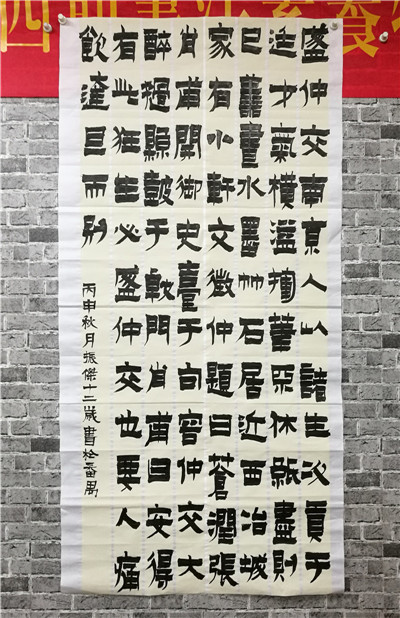 盛仲交南京人以諸生次貢于
廷才氣橫溢揮筆休紙盡則
已善畫水墨竹石居近西冶城
家有小軒文徵仲題曰蒼潤張
肖甫開御史臺于句容仲交大
醉鼓于戟門肖甫曰安得
有此狂生必盛仲交也要人痛
飲達旦而別
丙申秋月振傑十二歲書於番禺